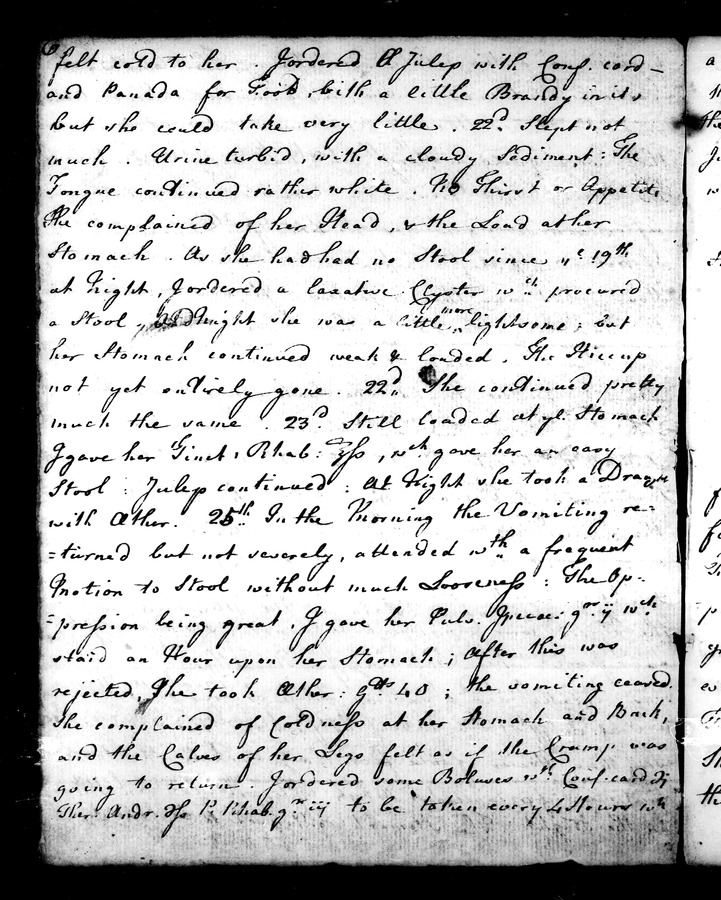 felt cold to her. I ordered a Julep with Conf. cord-
and Panada for Food, with a little Brandy in it,
but she could take very little. 22d. Slept not
much. Urine turbid, with a cloudy Sediment: The
Tongue continued rather white. No Thirst or Appetite
She complained of her Head, & the Load at her
Stomach. As she had had no Stool since ye 19th
at Night, I ordered a laxative Clyster wch procured
a Stool, Night she was a little more lightsome; but
her Stomach continued weak & loaded. The Hiccup
not yet entirely gone. 22d. She continued pretty
much the same. 23d. Still loaded at ye Stomach
I gave her Tinct: Rhab: ℥ſs, wch gave her an easy
Stool: Julep continued: At Night she took a Draught
with Æther. 25th. In the Morning the Vomiting re-
=turned but not severely, attended wth a frequent
Motion to Stool without much Looseneſs: The Op-
=preſsion being great, I gave her Pulv. Ipecac: gr. ij wch
staid an Hour upon her Stomach; After this was
rejected, She took Æther: gtts 40; the vomiting ceased.
She complained of Coldneſs at her Stomach and Back,
and the Calves of her Legs felt as if the Cramp was
going to return. I ordered some Boluses wth Conf. card ℈j
Ther. Andr. ℈ſs P. Rhab. gr iij to be taken every 4 Hours wth